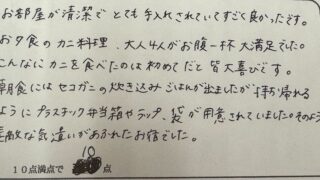 お部屋が清潔で とても手入れされていてすごく良かったです。
お夕食のカニ料理、大人4人がお腹一杯 大満足でした。
こんなにカニを食べたのは初めてだと 皆大喜びです。
朝食にはセコガニの炊き込みごはんが出ましたが「持ち帰れる
ように プラスチック弁当箱やラップ、袋が用意されていました。そのよう
素敵な気遣いがあふれたお宿でした。
10点満点で 10 点